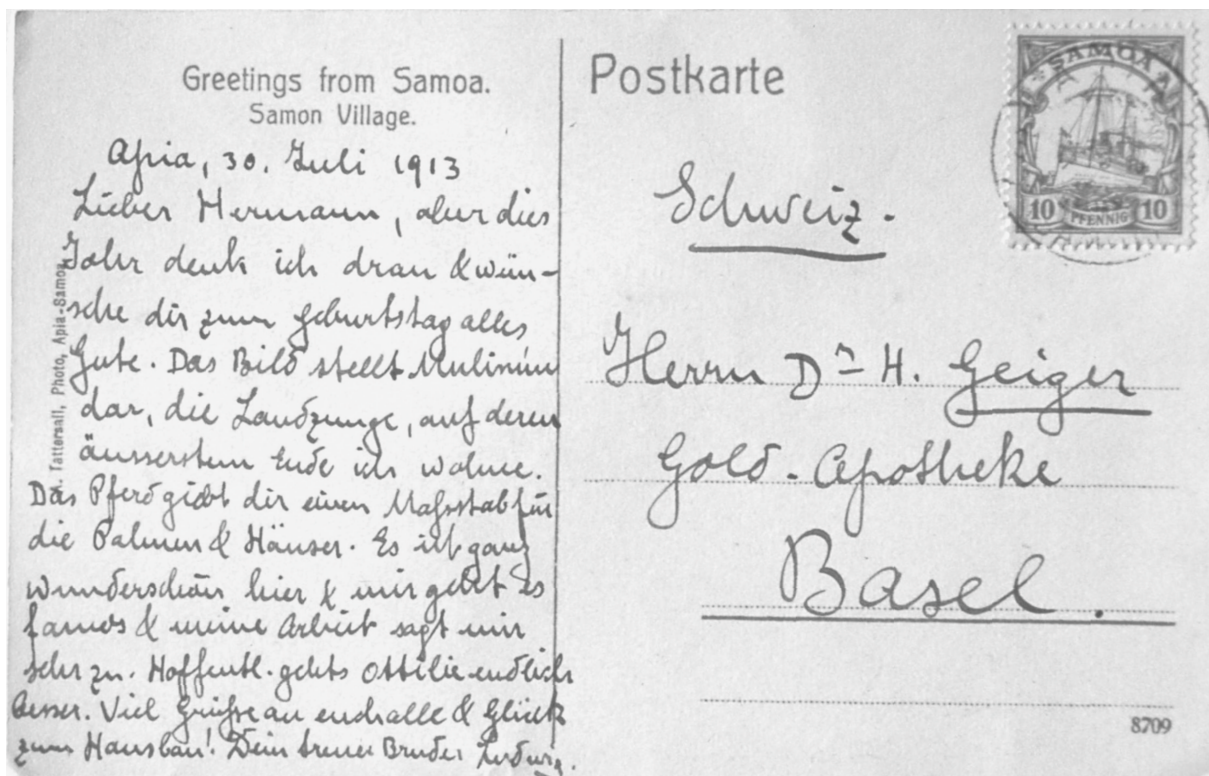 Greetings from Samoa.
Samon Village.
Apia, 30. Juli 1913
Lieber Hermann, aber dies
Jahr denk ich dran & wün-
sche dir zum Geburtstag alles
Gute. Das Bild stellt Mulinuu
dar, die Landzunge, auf deren
äusserstem Ende ich wohne.
Das Pferd giebt dir einen Maßstab für
die Palmen & Häuser. Es ist ganz
wunderschön hier & mir geht es
famos & meine Arbeit sagt mir
sehr zu. Hoffentl. gehts Ottilie endlich
besser. Viel Grüße an euch alle & Glück
zum Hausbau! Dein treuer Bruder Ludwig.
Tattersall, Photo, Apia-Samoa
Postkarte
SAMOA
10 PFENNIG 10
Schweiz.
Herrn Dr H. Geiger
Gold-Apotheke
Basel.
8709